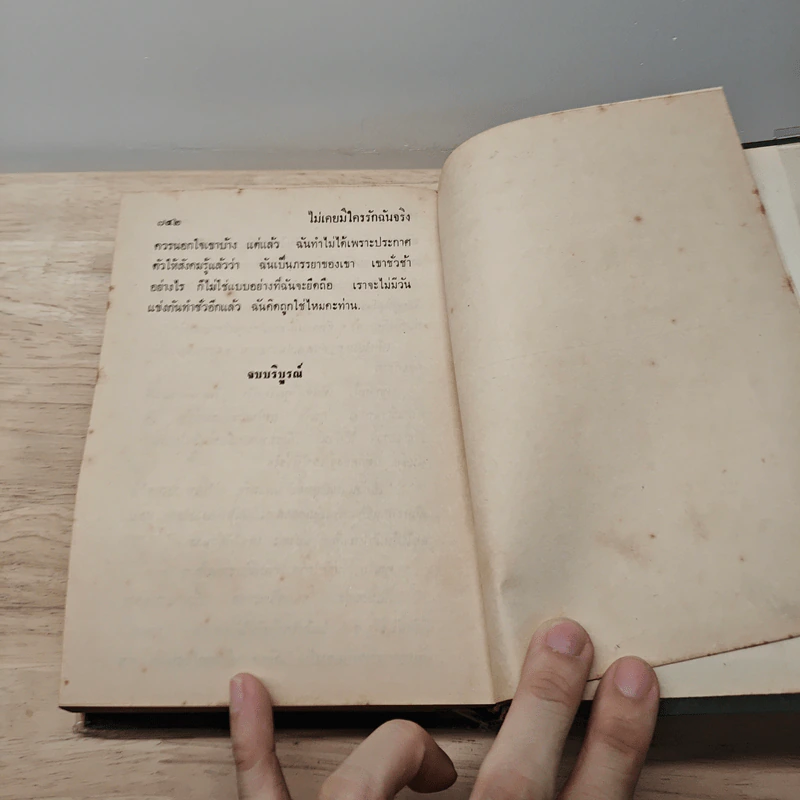 ๘๔๒ ไม่เคยมีใครรักฉันจริง
ควรนอกใจเขาบ้าง แต่แล้ว ฉันทำไม่ได้เพราะประกาศ
ตัวให้สังคมรู้แล้วว่า ฉันเป็นภรรยาของเขา เขาชั่วช้า
อย่างไร ก็ไม่ใช่แบบอย่างที่ฉันจะยึดถือ เราจะไม่มีวัน
แข่งกันทำชั่วอีกแล้ว ฉันคิดถูกใช่ไหมคะท่าน.
จบบริบูรณ์